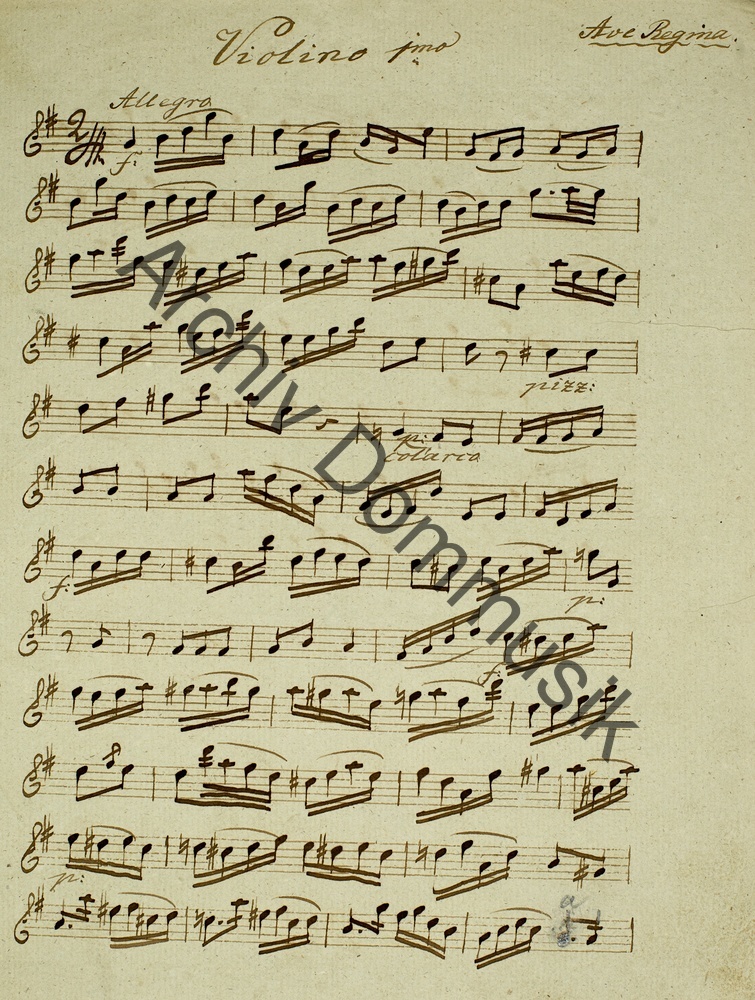 Violino 1mo
Ave Regina.
Allegro
2/4
f:
pizz:
p:
col'arco
f:
p:
f:
p:
Archiv Dommusik